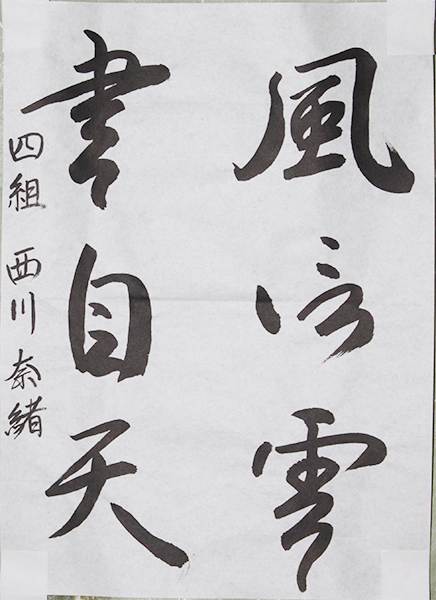 風信雲
書自天
四組 西川奈緒